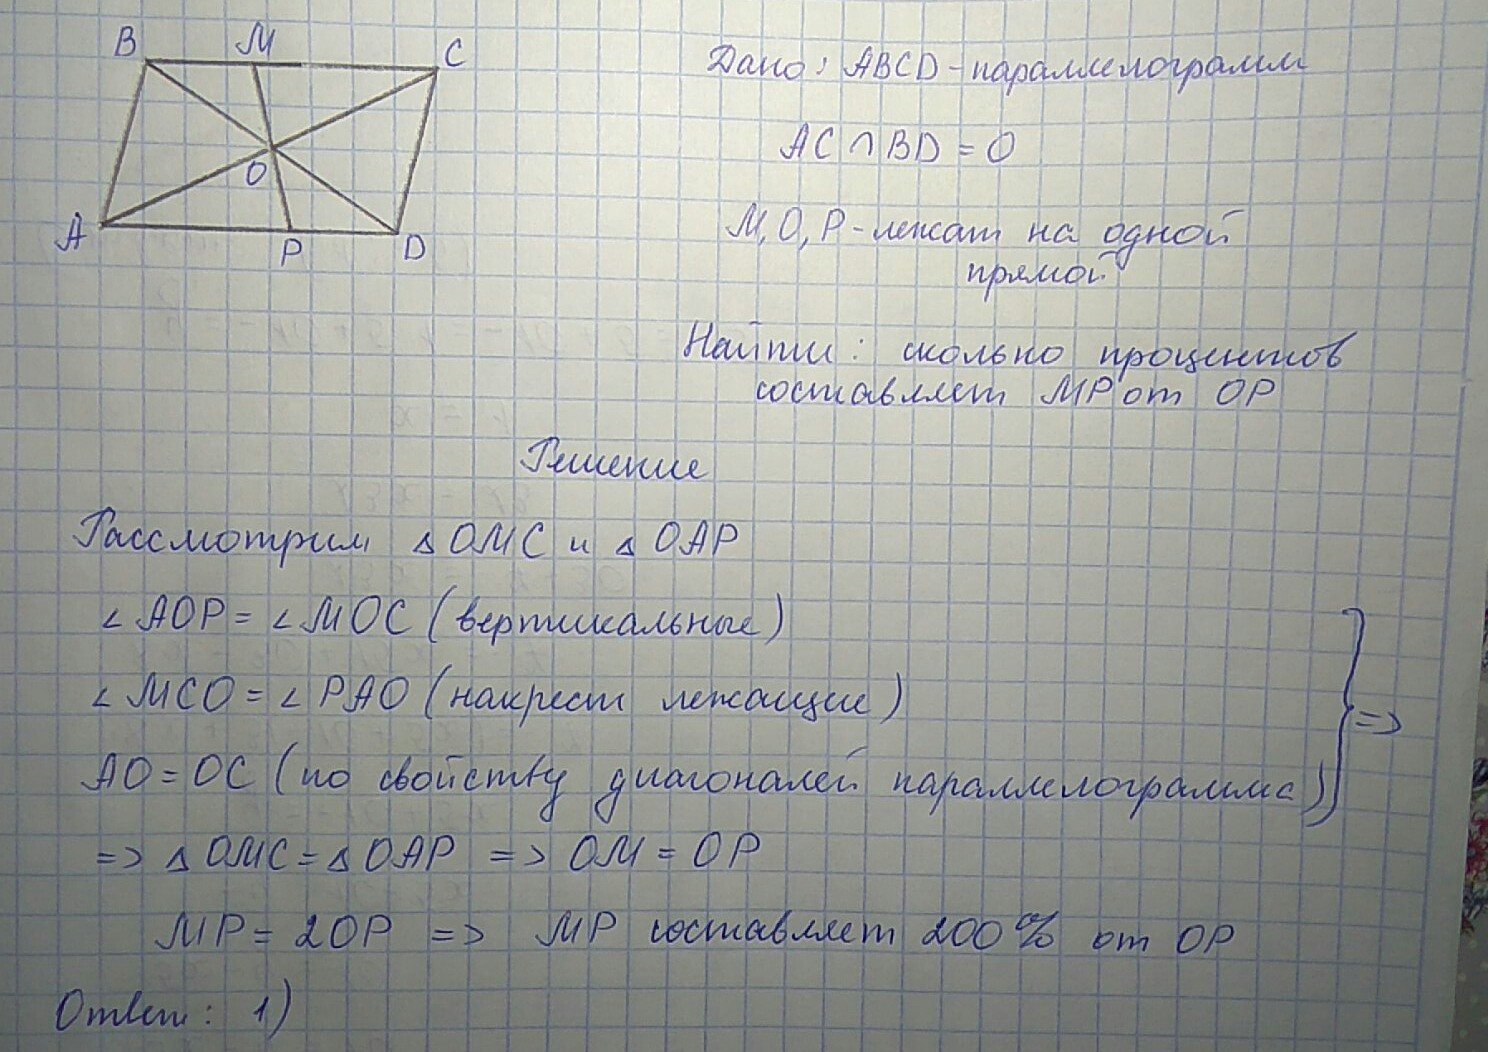 B M C
O
A P D
Дано: ABCD - параллелограмм
AC ∩ BD = O
M, O, P - лежат на одной
прямой
Найти: сколько процентов
составляет MP от OP
Решение
Рассмотрим △OMC и △OAP
∠AOP = ∠MOC (вертикальные)
∠MCO = ∠PAO (накрест лежащие)
AO = OC (по свойству диагоналей параллелограмма)
=>
=> △OMC = △OAP => OM = OP
MP = 2OP => MP составляет 200% от OP
Ответ: 1)